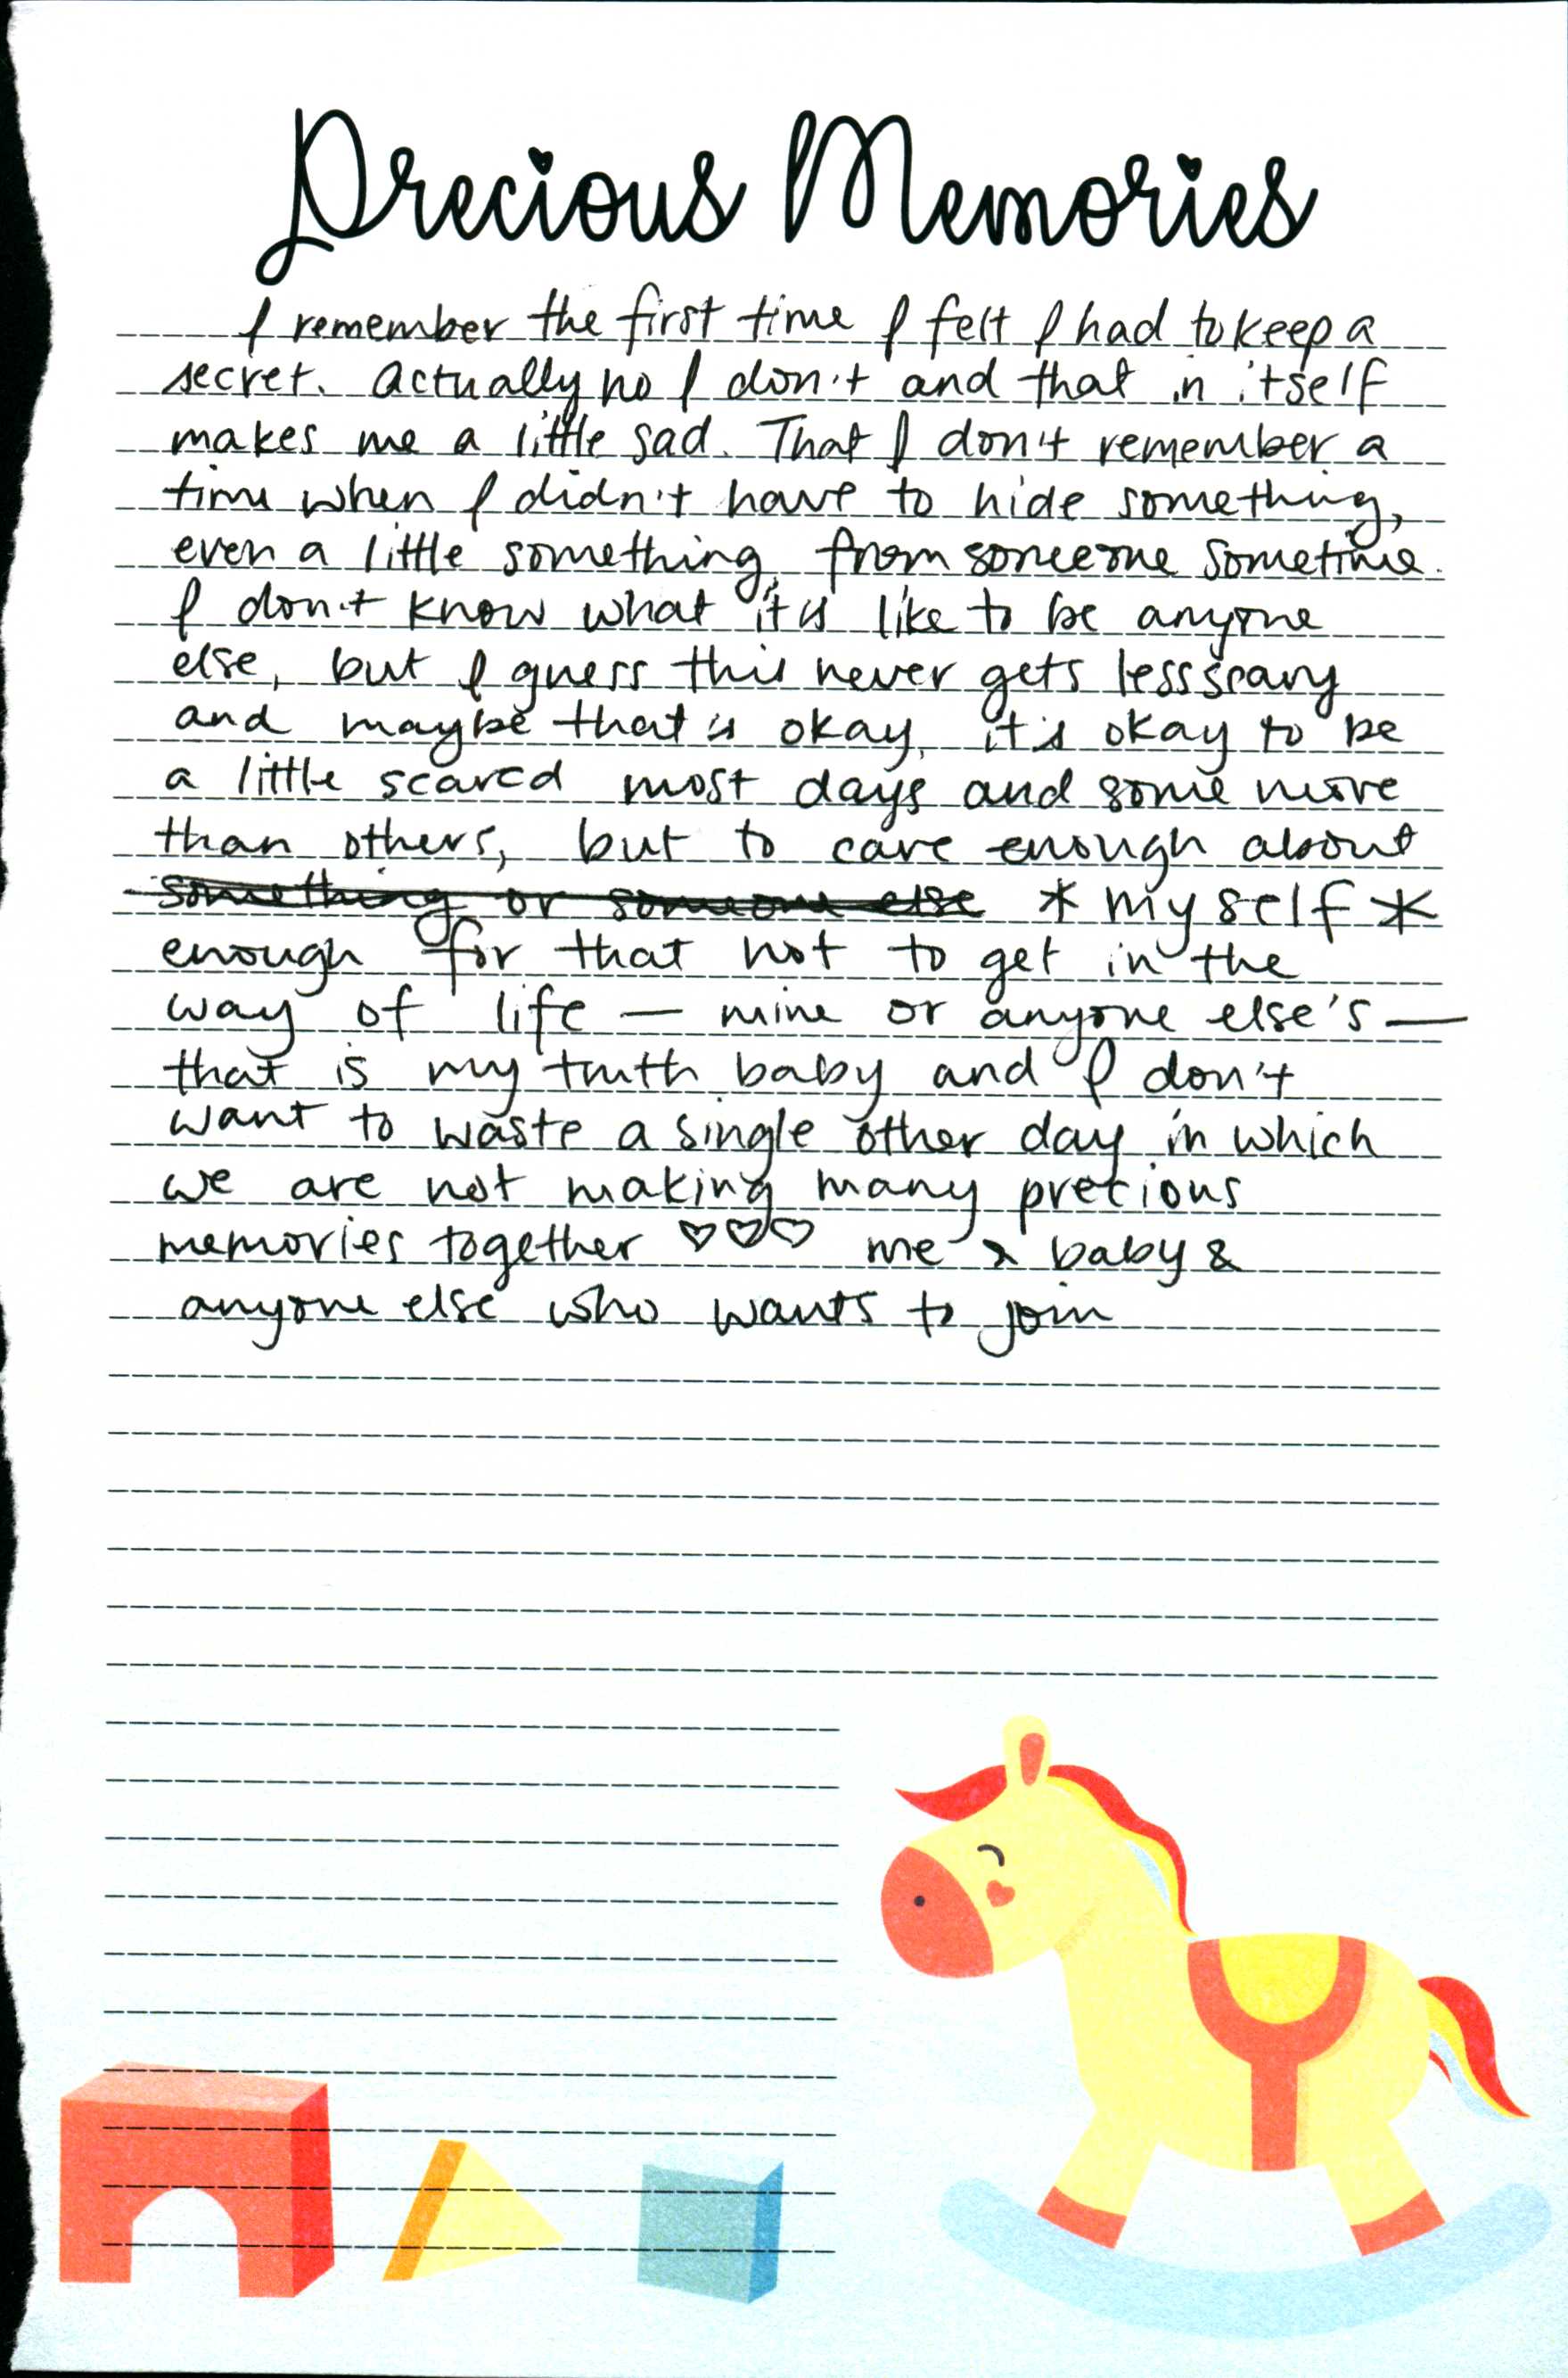 Precious Memories
I remember the first time I felt I had to keep a
secret. Actually no I don't and that in itself
makes me a little sad. That I don't remember a
time when I didn't have to hide something,
even a little something, from someone sometime.
I don't know what it is like to be anyone
else, but I guess this never gets less scary
and maybe that is okay, it's okay to be
a little scared most days and some more
than others, but to care enough about
something or someone else * myself *
enough for that not to get in the
way of life — mine or anyone else's —
that is my truth baby and I don't
want to waste a single other day in which
we are not making many precious
memories together ♡♡♡ me & baby &
anyone else who wants to join